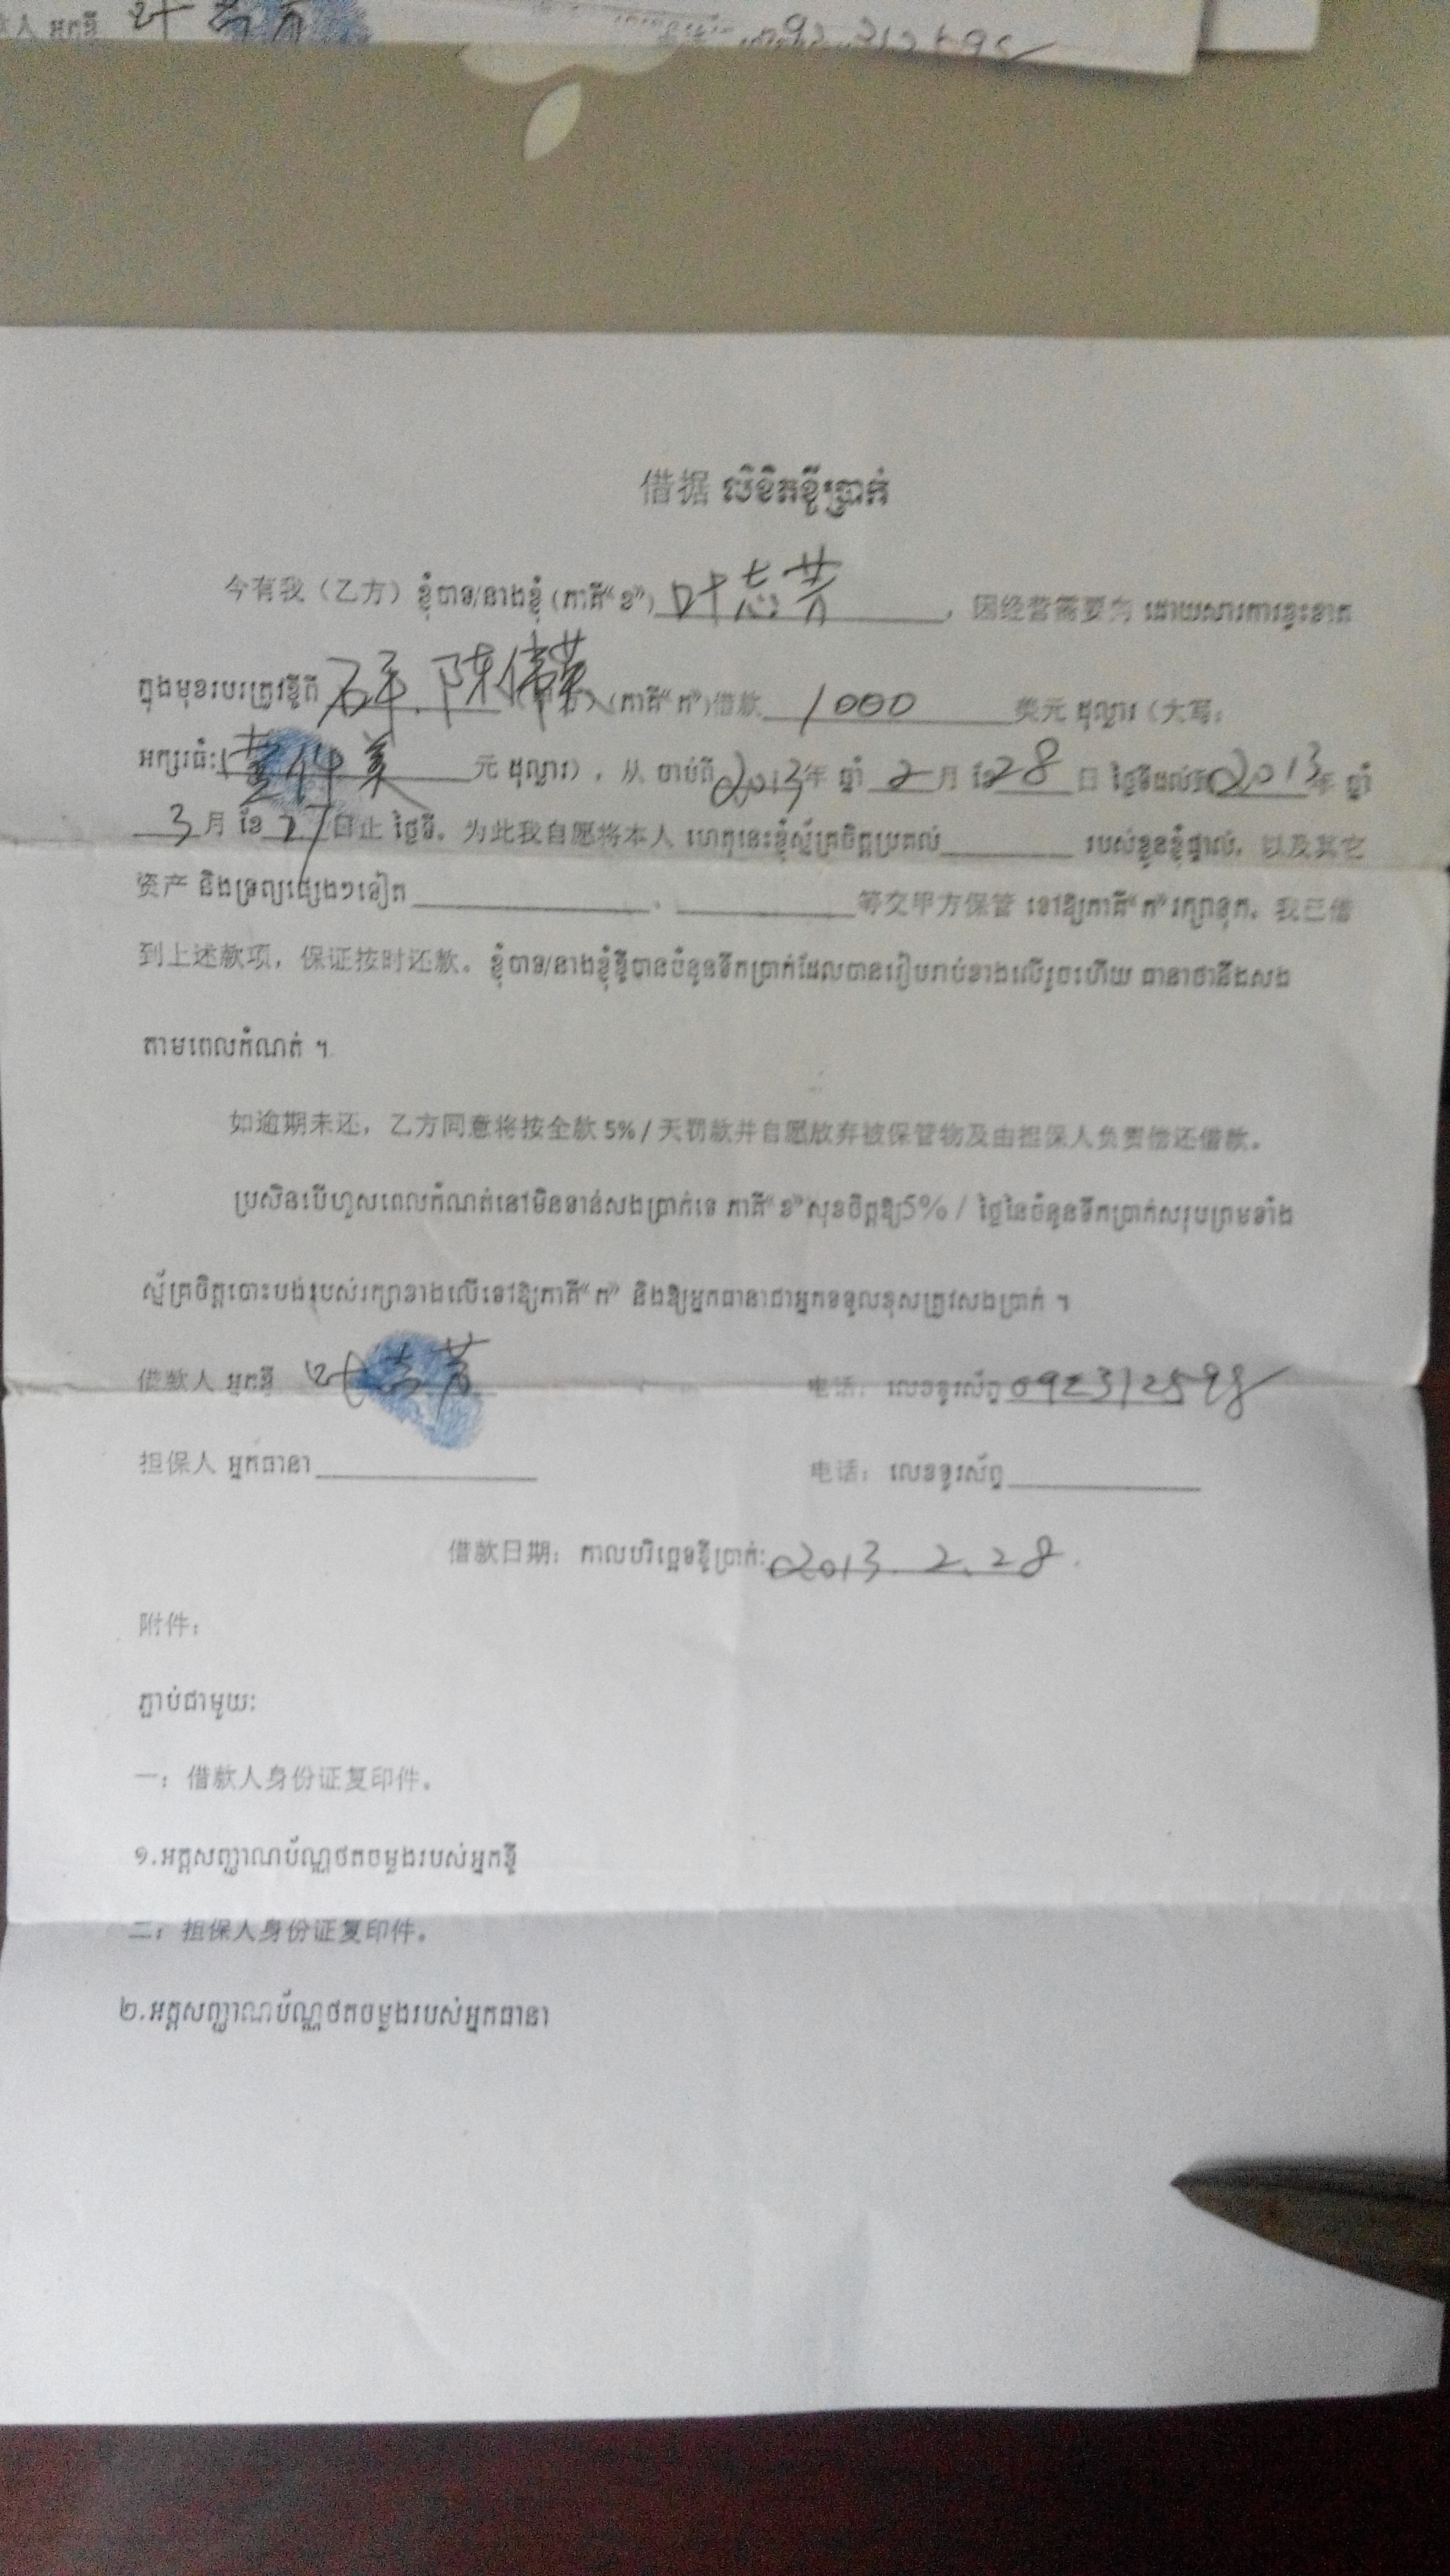 人 អ្នកខ្ចី 叶志芳
借据 លិខិតខ្ចីប្រាក់
今有我（乙方）ខ្ញុំបាទ/នាងខ្ញុំ (ភាគី“ខ”) 叶志芳 ，因经营需要向 ដោយសារការខ្វះខាត
ក្នុងមុខរបរត្រូវខ្ចីពី 陈伟英 (ភាគី“ក”)借款 1000 美元 ដុល្លារ（大写：
អក្សរធំ:( 元 ដុល្លារ），从 ចាប់ពី 2013年 ឆ្នាំ 2月 ខែ 28 日 ថ្ងៃទីដល់ 2013年 ឆ្នាំ
3月 ខែ 27日止 ថ្ងៃទី. 为此我自愿将本人 ហេតុនេះខ្ញុំស្ម័គ្រចិត្តប្រគល់ របស់ខ្លួនខ្ញុំផ្ទាល់. 以及其它
资产 និងទ្រព្យផ្សេងៗទៀត 、 等交甲方保管 ទៅឱ្យភាគី“ក”រក្សាទុក. 我已借
到上述款项，保证按时还款。ខ្ញុំបាទ/នាងខ្ញុំខ្ចីបានចំនួនទឹកប្រាក់ដែលបានរៀបរាប់ខាងលើរួចហើយ ធានាថានឹងសង
តាមពេលកំណត់ ។
如逾期未还，乙方同意将按全款 5% / 天罚款并自愿放弃被保管物及由担保人负责偿还借款。
ប្រសិនបើហួសពេលកំណត់នៅមិនទាន់សងប្រាក់ទេ ភាគី“ខ”សុខចិត្តឱ្យ5% / ថ្ងៃនៃចំនួនទឹកប្រាក់សរុបព្រមទាំង
ស្ម័គ្រចិត្តបោះបង់របស់រក្សាខាងលើទៅឱ្យភាគី“ក” និងឱ្យអ្នកធានាជាអ្នកទទួលខុសត្រូវសងប្រាក់ ។
借款人 អ្នកខ្ចី 叶志芳 电话： លេខទូរស័ព្ទ 092312598
担保人 អ្នកធានា 电话： លេខទូរស័ព្ទ
借款日期： កាលបរិច្ឆេទខ្ចីប្រាក់: 2013. 2. 28.
附件：
ភ្ជាប់ជាមួយ:
一：借款人身份证复印件。
១.អត្តសញ្ញាណប័ណ្ណថតចម្លងរបស់អ្នកខ្ចី
二：担保人身份证复印件。
២.អត្តសញ្ញាណប័ណ្ណថតចម្លងរបស់អ្នកធានា